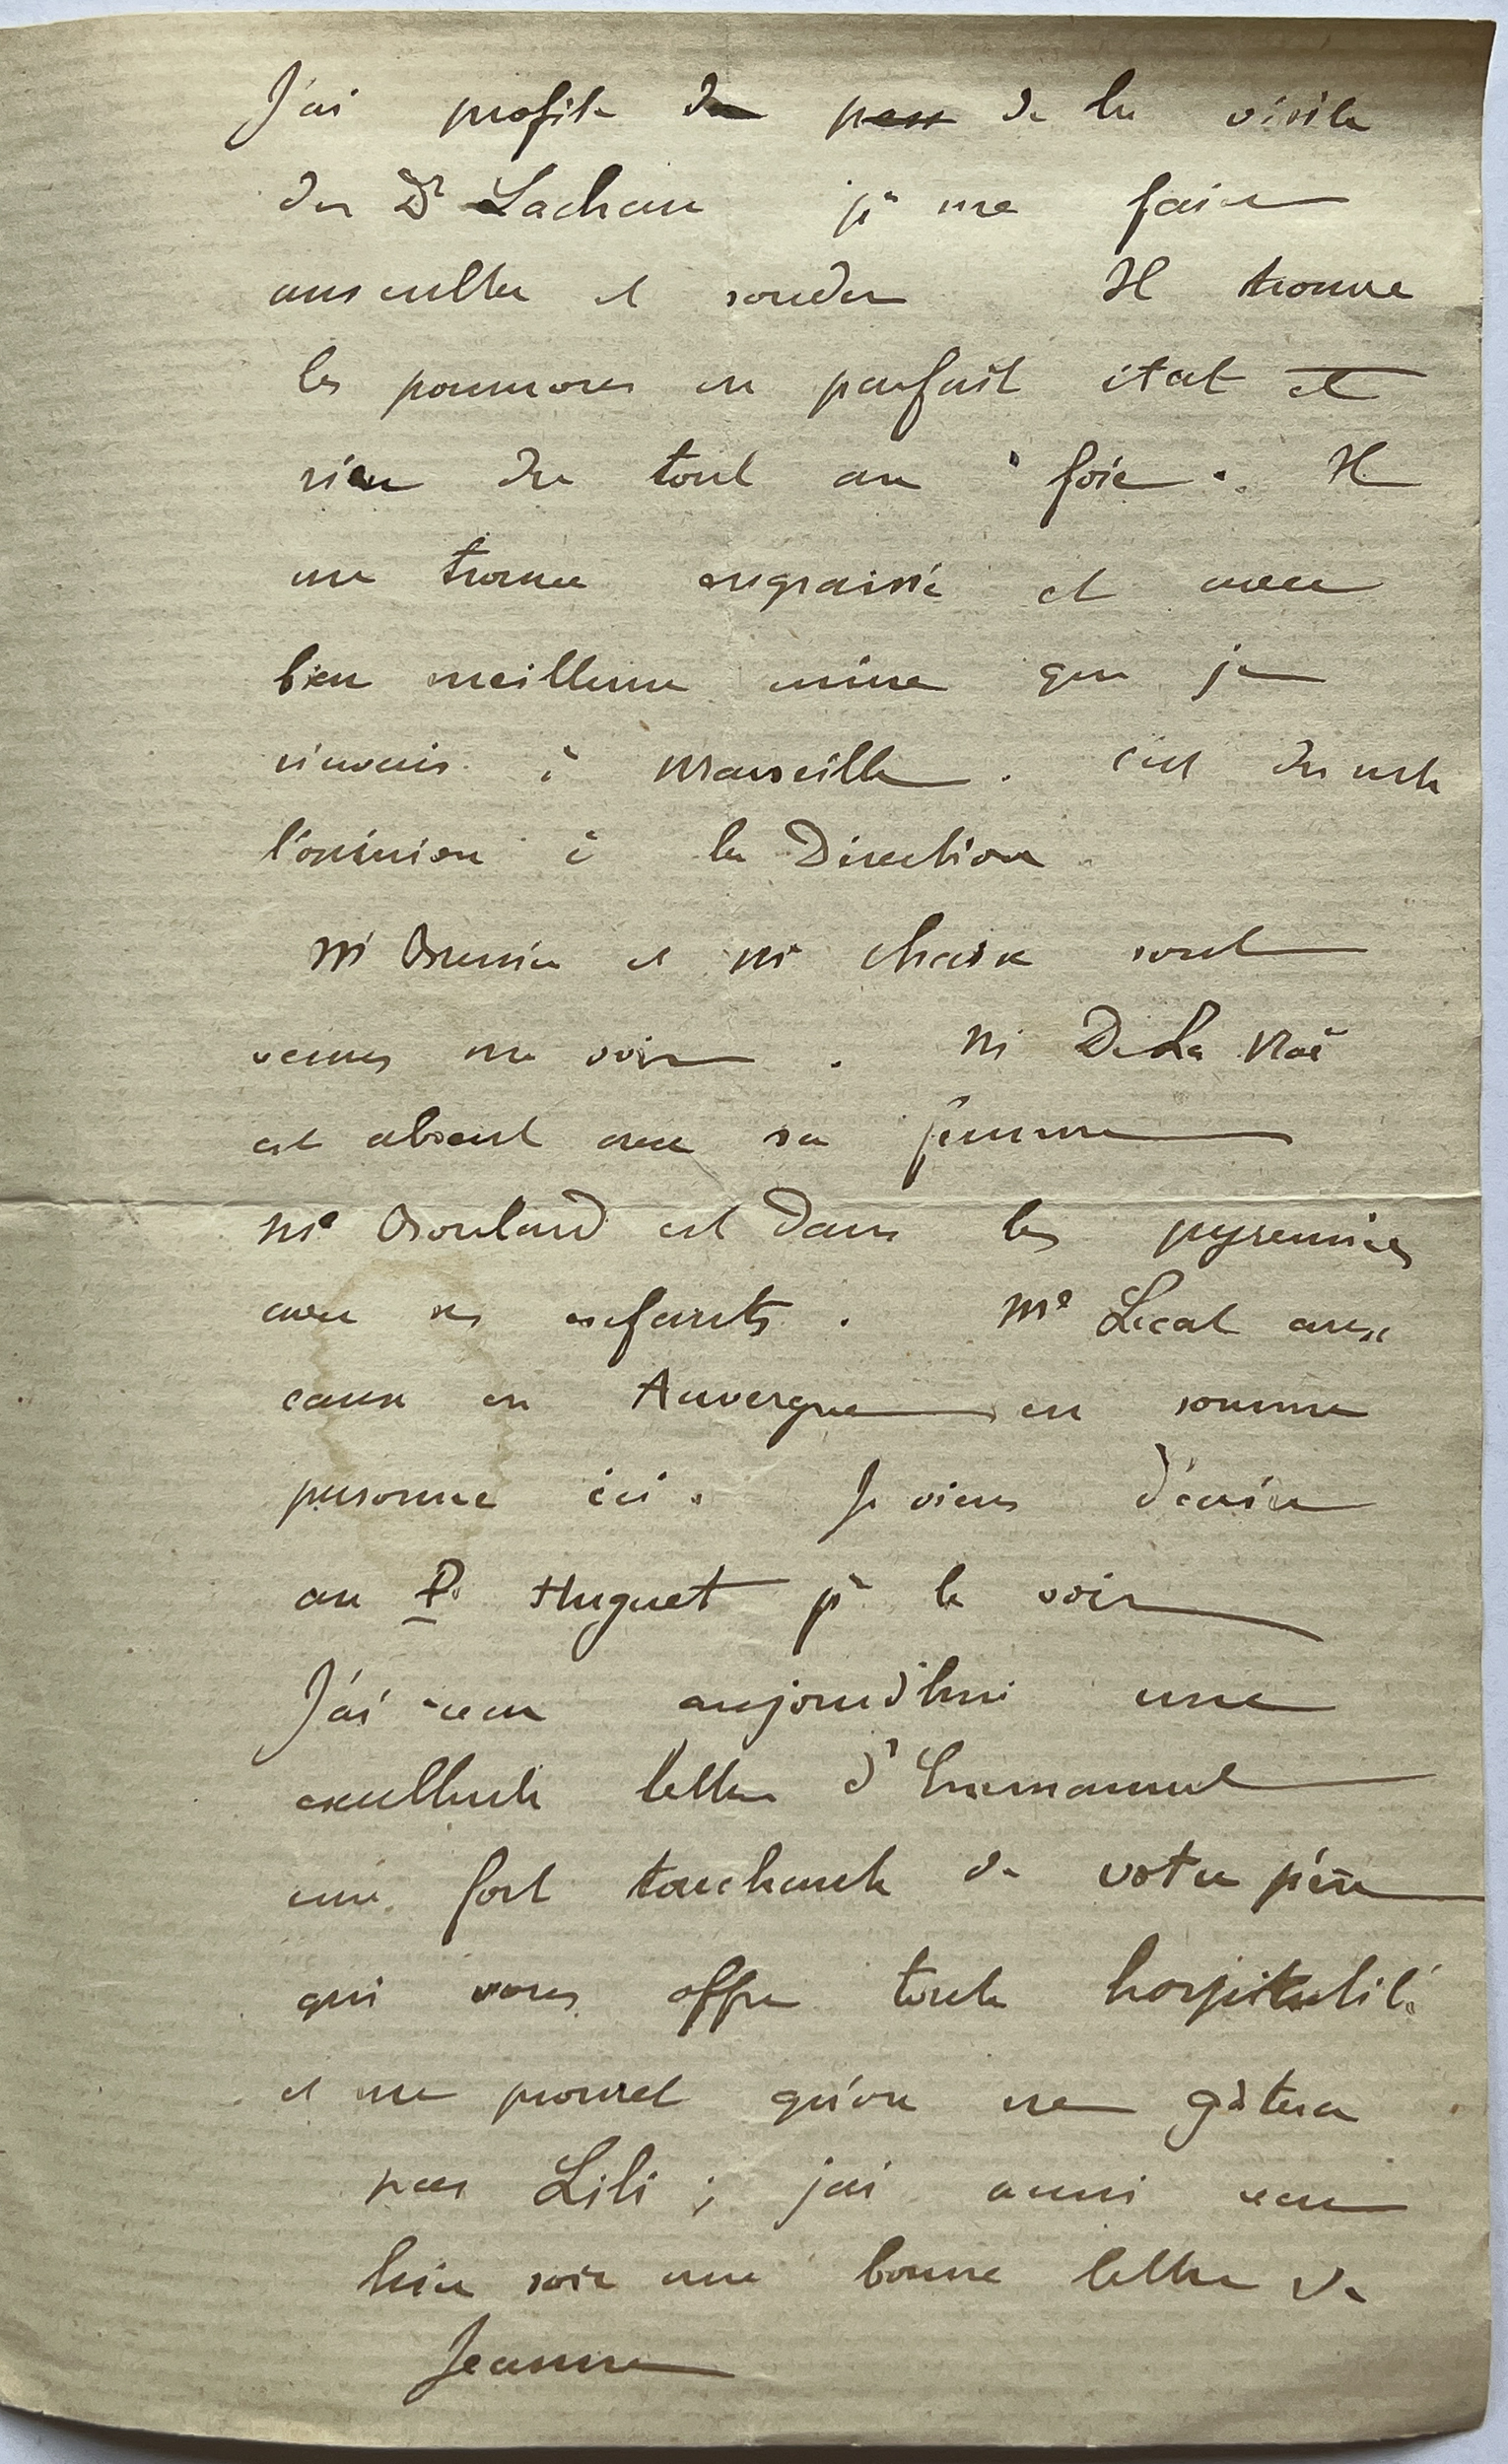 J'ai profité de la visite
du Dr Lachaux pr me faire
ausculter et sonder Il trouve
les poumons en parfait état et
rien du tout au foie. Il
me trouve engraissé et avec
bien meilleure mine que je
n'avais à Marseille. C'est du reste
l'opinion à la Direction.
Mr et Mr sont
venus me voir. Mr De La Noë
est absent avec sa femme
Me Boulard est dans les pyrennées
avec ses enfants. Me Lecat aux
eaux en Auvergne en somme
personne ici. Je viens d'écrire
au P. Huguet pr le voir
J'ai recu aujourd'hui une
excellente lettre d'Emmanuel
une fort touchante de votre père
qui vous offre toute hospitalité
et me promet qu'on ne gâtera
pas Lili ; j'ai aussi recu
hier soir une bonne lettre de
Jeanne